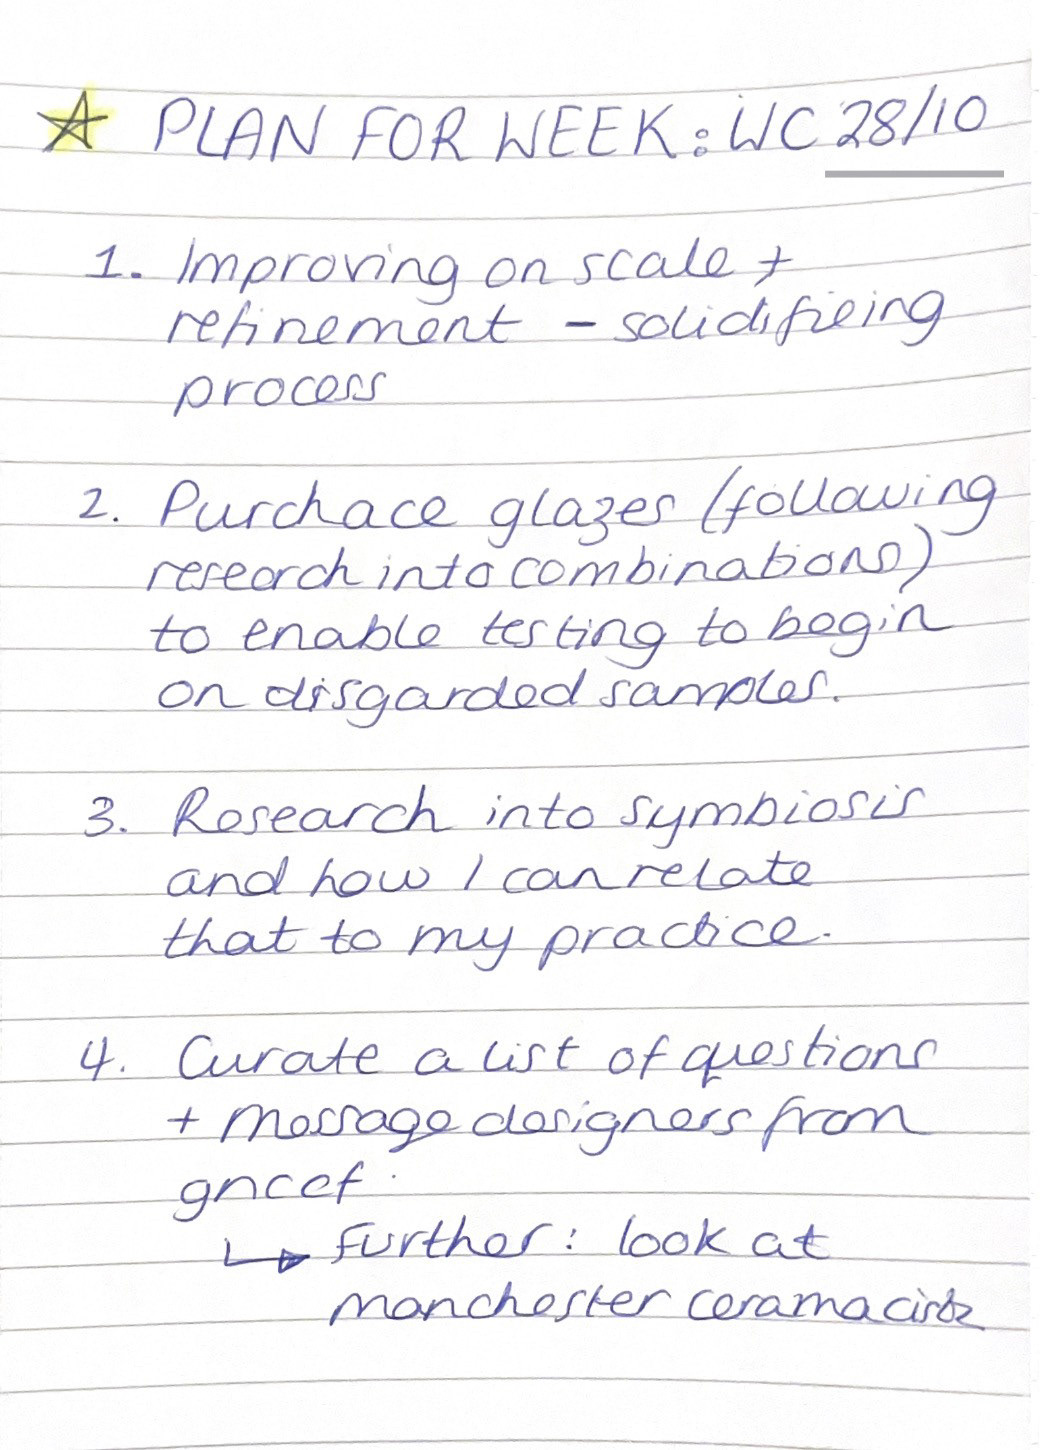 ☆ PLAN FOR WEEK: WC 28/10
1. Improving on scale +
refinement - solidifieing
process
2. Purchace glazes (following
research into combinations)
to enable testing to begin
on disgarded samples.
3. Research into symbiosis
and how I can relate
that to my practice.
4. Curate a list of questions
+ message designers from
gnccf.
↳ Further: look at
manchester